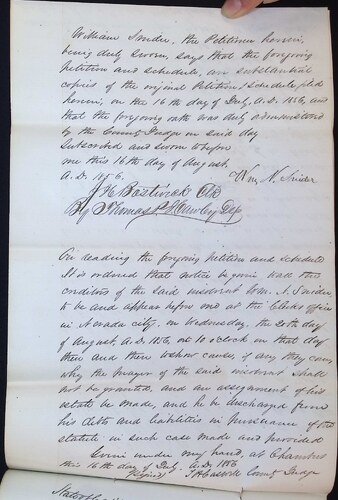 William Snider, the Petitioner herein,
being duly sworn, says that the foregoing
petition and schedule, are substantial
copies of the original Petition & Schedule filed
herein, on the 16th day of July, A.D. 1856, and
that the foregoing oath was duly administered
by the County Judge on said day
Subscribed and sworn to before
me this 16th day of August,
A.D. 1856. Wm. N. Snider
J H Bostwick Clk
By Thomas P. Hawley Dep
On reading the foregoing petition and schedule
It is ordered that notice be given to all the
creditors of the said insolvent Wm. N. Snider,
to be and appear before me at the Clerks office
in Nevada city, on Wednesday, the 20th day
of August, A.D. 1856, at 10 o'clock in that day
then and there to show cause, if any they can,
why the prayer of the said insolvent shall
not be granted, and an assignment of his
estate be made, and he be discharged from
his debts and liabilities in pursuance of the
statute in such case made and provided
Given under my hand, at Chambers
this 16th day of July, A.D. 1856
(Signed) County Judge
State of